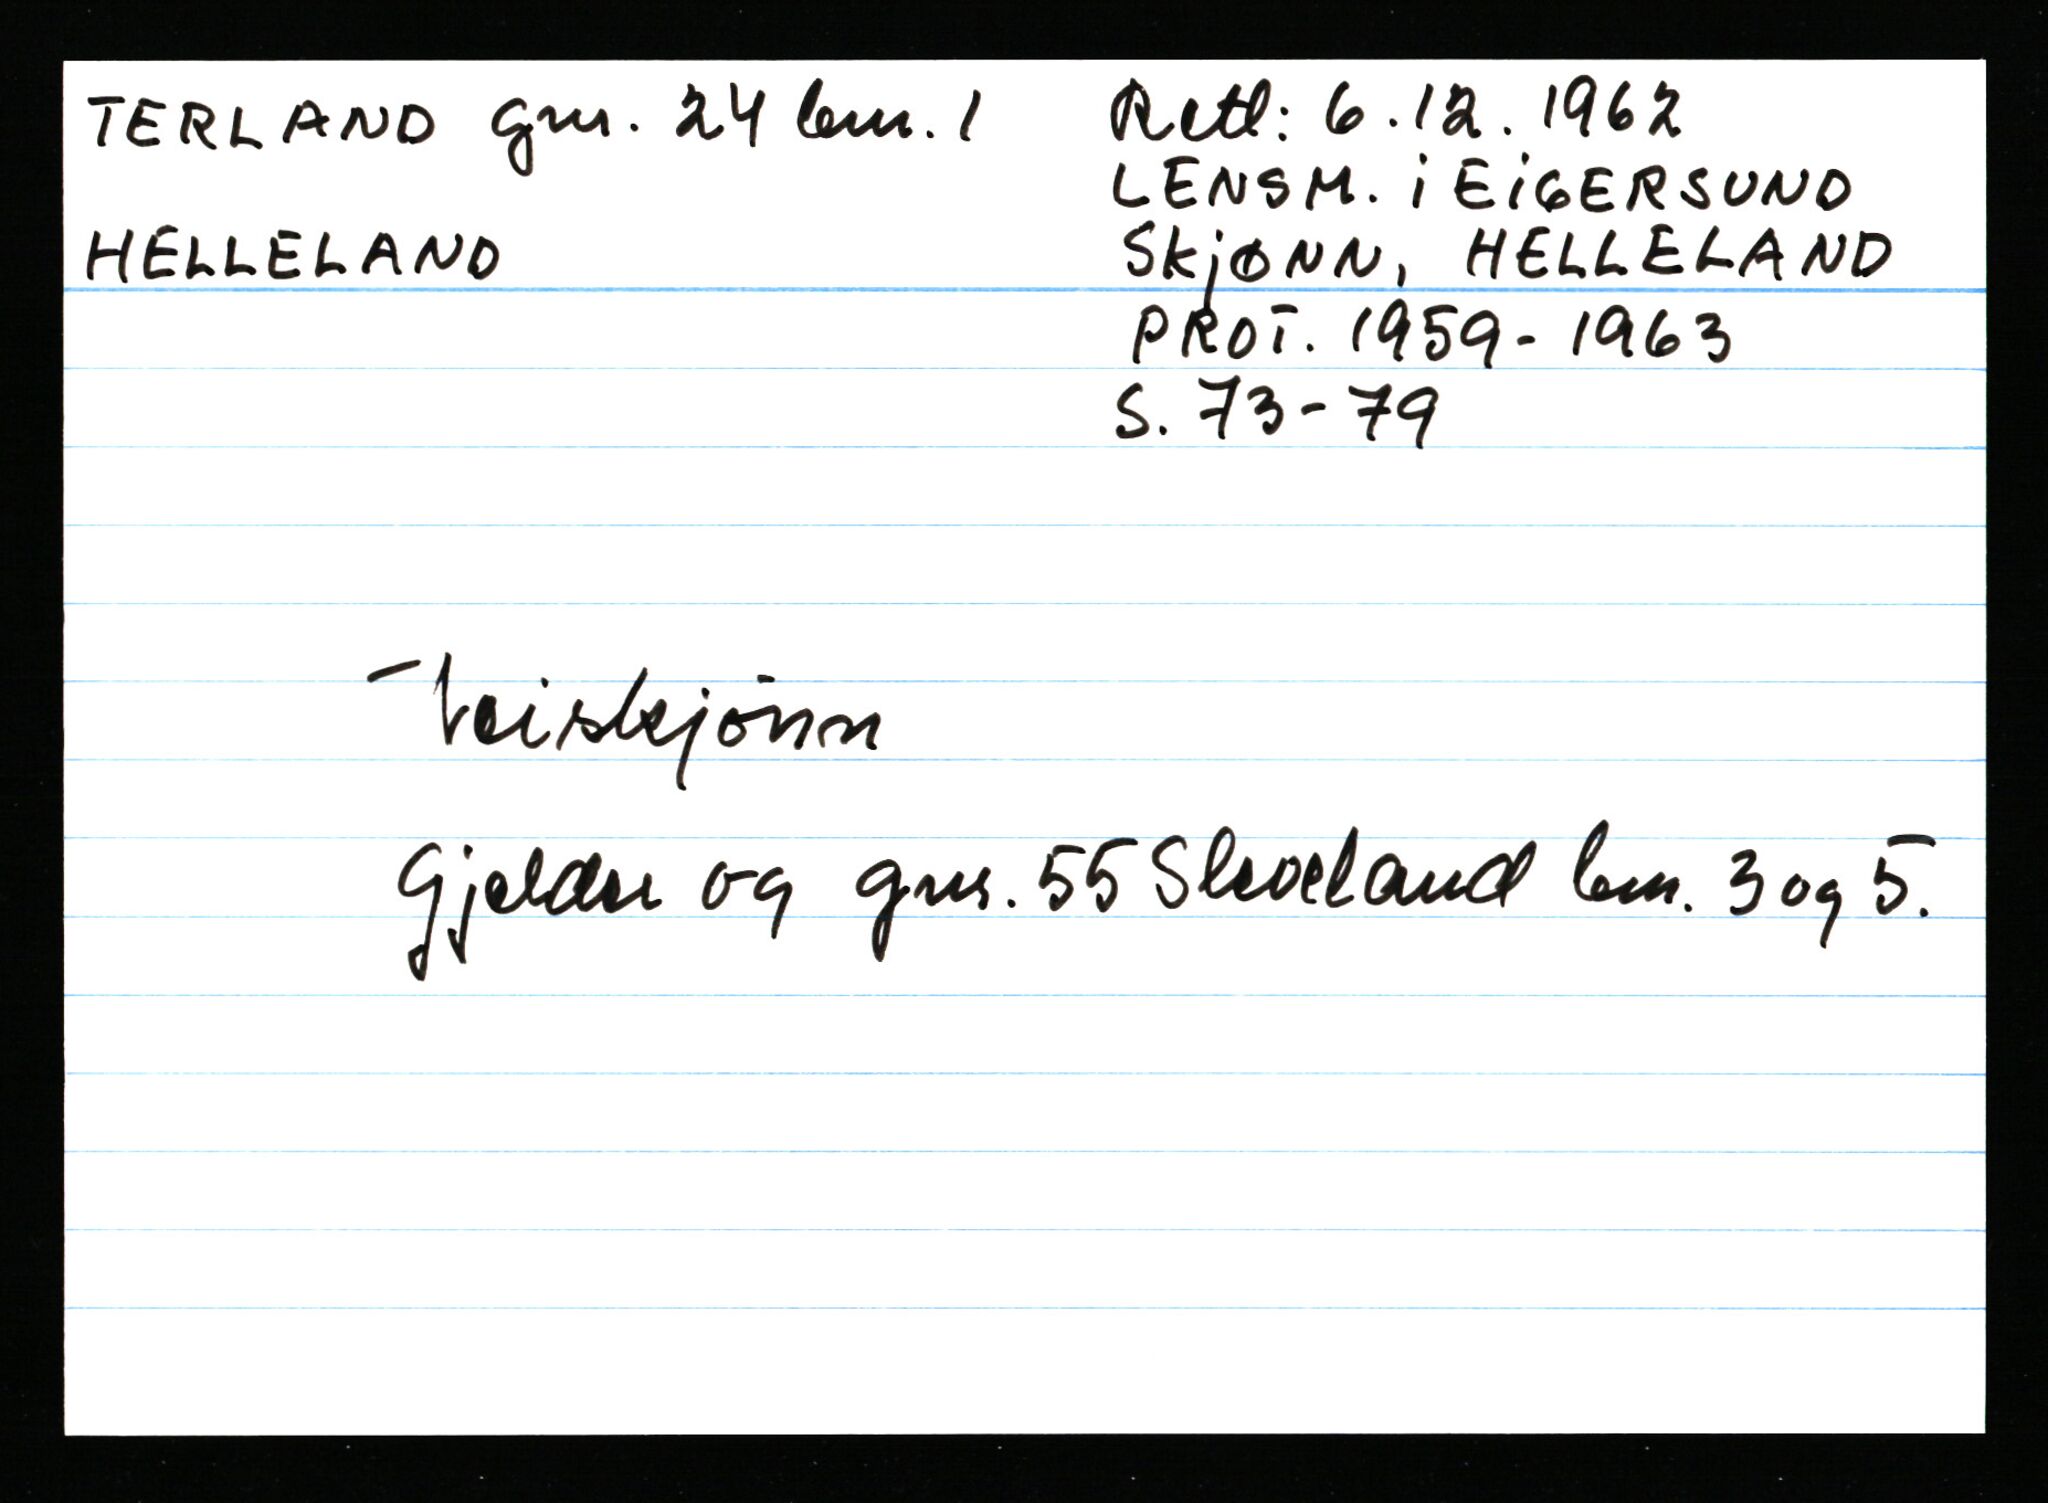 TERLAND gnr. 24 bnr. 1
HELLELAND
Retl: 6.12.1962
LENSM. i EiGERSUND
SkjØNN, HELLELAND
PROT. 1959-1963
S. 73-79
Veiskjønn
Gjelder og gnr. 55 Skoeland bnr. 3 og 5.